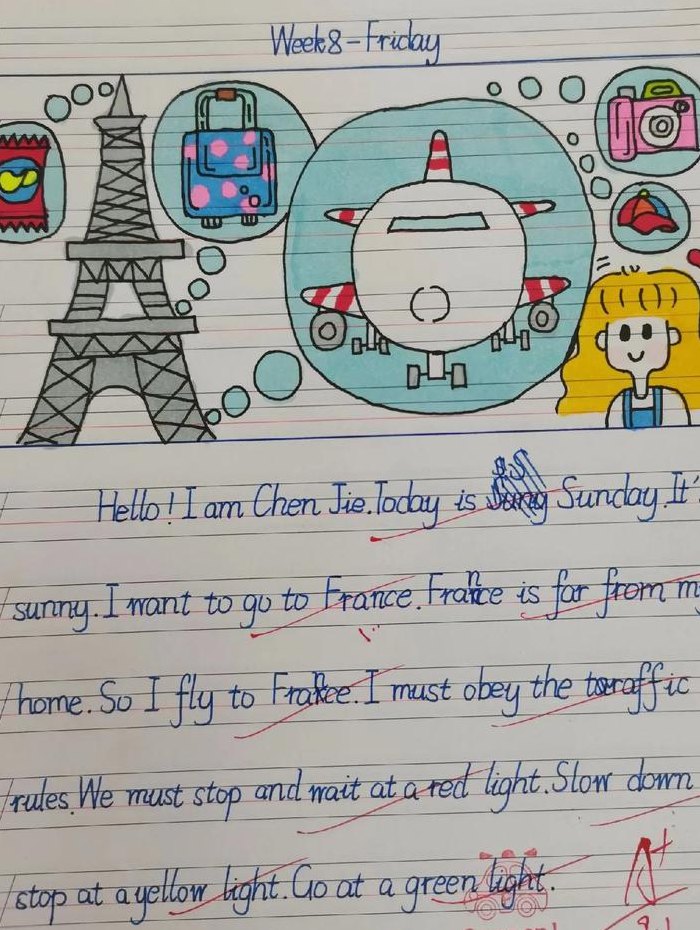 Week8-Friday
Hello! I am Chen Jie. Today is Sunday. It'
sunny. I want to go to France. France is far from m
home. So I fly to France. I must obey the traffic
rules. We must stop and wait at a red light. Slow down
stop at a yellow light. Go at a green light.
A+